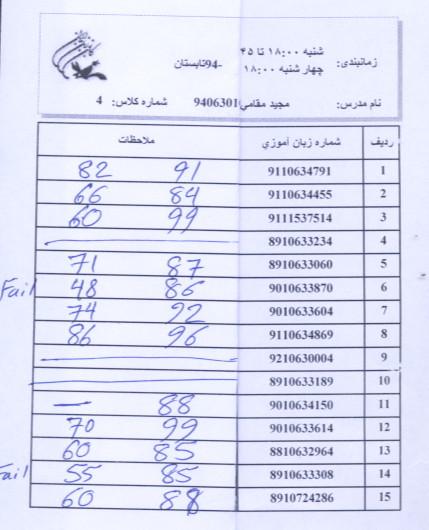 زمانبندی: شنبه ۱۸:۰۰ تا ۴۵ -94تابستان
چهار شنبه ۱۸:۰۰
نام مدرس: مجید مقامی 9406301 شماره کلاس: 4
ردیف شماره زبان آموزي ملاحظات
1 9110634791 91 82
2 9110634455 84 66
3 9111537514 99 60
4 8910633234
5 8910633060 87 71
6 9010633870 86 48 Fail
7 9010633604 92 74
8 9110634869 96 86
9 9210630004
10 8910633189
11 9010634150 88 —
12 9010633614 99 70
13 8810632964 85 60
14 8910633308 85 55 Fail
15 8910724286 88 60